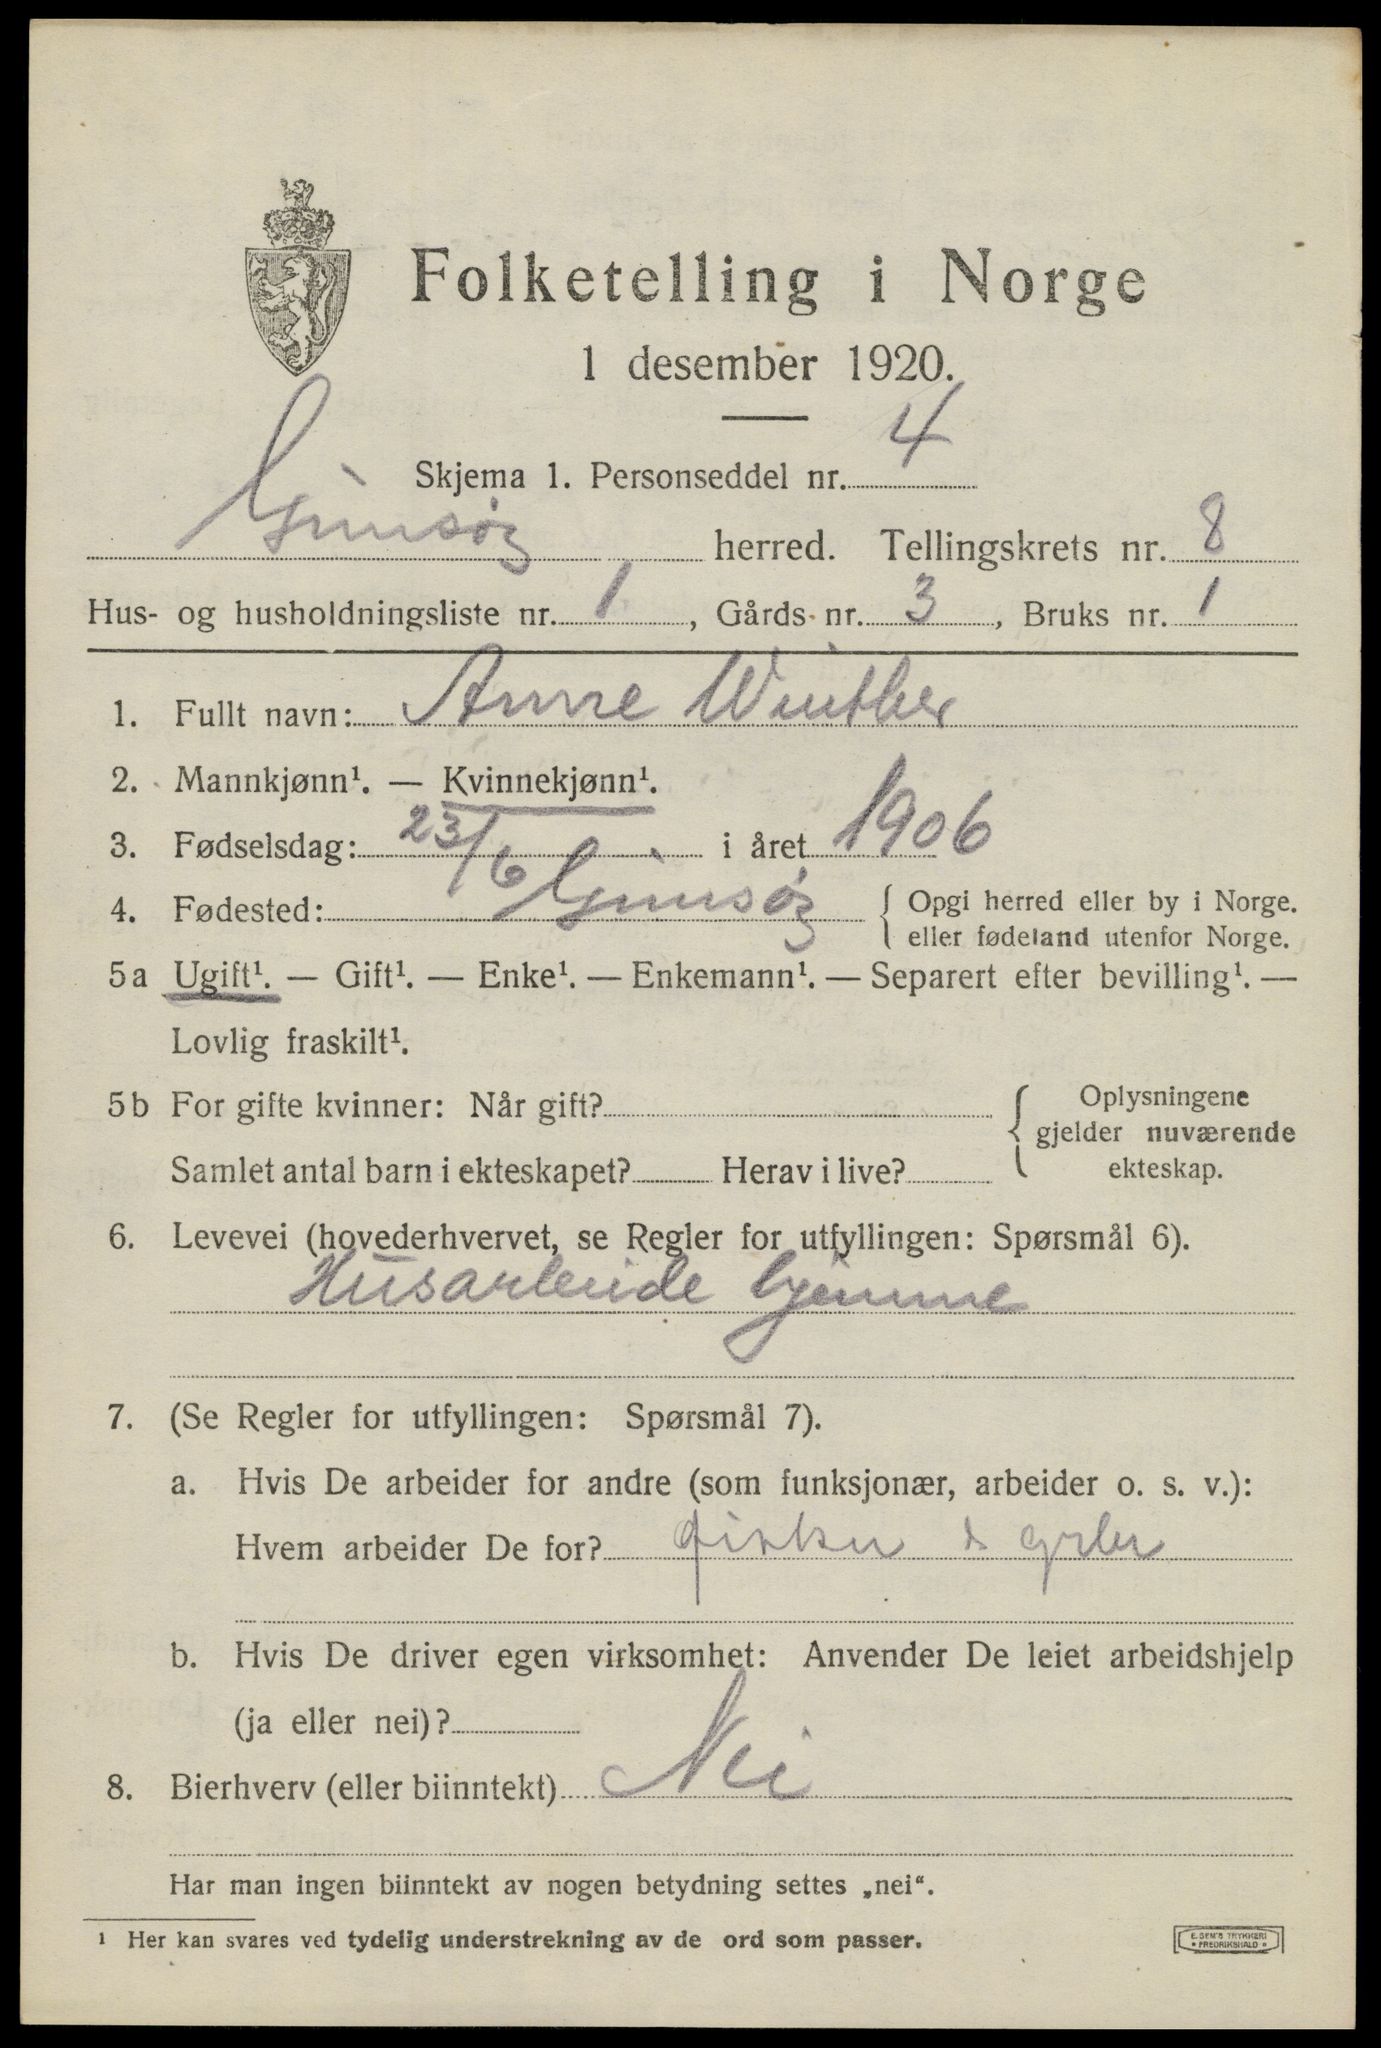 Folketelling i Norge
1 desember 1920.
Skjema 1. Personseddel nr. 4
Gimsøy herred. Tellingskrets nr. 8
Hus- og husholdningsliste nr. 1, Gårds nr. 3, Bruks nr. 1
1. Fullt navn: Anne Winther
2. Mannkjønn¹. — Kvinnekjønn¹.
3. Fødselsdag: 23/6 i året 1906
4. Fødested: Gimsøy { Opgi herred eller by i Norge.
eller fødeland utenfor Norge.
5a Ugift¹. — Gift¹. — Enke¹. — Enkemann¹. — Separert efter bevilling¹. —
Lovlig fraskilt¹.
5b For gifte kvinner: Når gift? { Oplysningene
gjelder nuværende
Samlet antal barn i ekteskapet? Herav i live? ekteskap.
6. Levevei (hovederhvervet, se Regler for utfyllingen: Spørsmål 6).
Husarbeide hjemme
7. (Se Regler for utfyllingen: Spørsmål 7).
a. Hvis De arbeider for andre (som funksjonær, arbeider o. s. v.):
Hvem arbeider De for?
b. Hvis De driver egen virksomhet: Anvender De leiet arbeidshjelp
(ja eller nei)?
8. Bierhverv (eller biinntekt) Nei
Har man ingen biinntekt av nogen betydning settes „nei“.
¹ Her kan svares ved tydelig understrekning av de ord som passer.
E. SEM'S TRYKKERI
• FREDRIKSHALD •